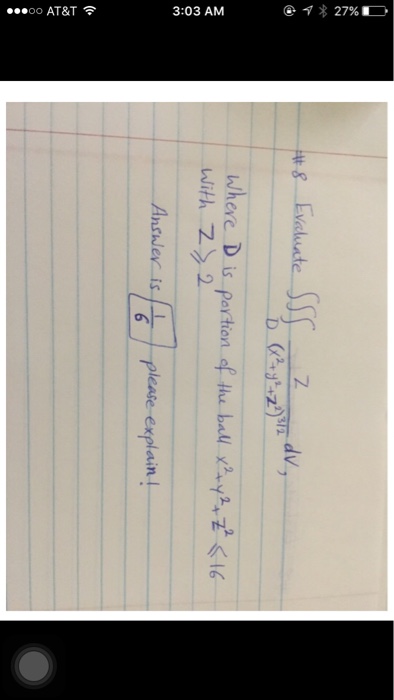 AT&T 3:03 AM 27%
#8 Evaluate ∭_D z/(x²+y²+z²)^{3/2} dV,
Where D is portion of the ball x²+y²+z² ≤ 16
with z ≥ 2
Answer is 1/6 please explain!